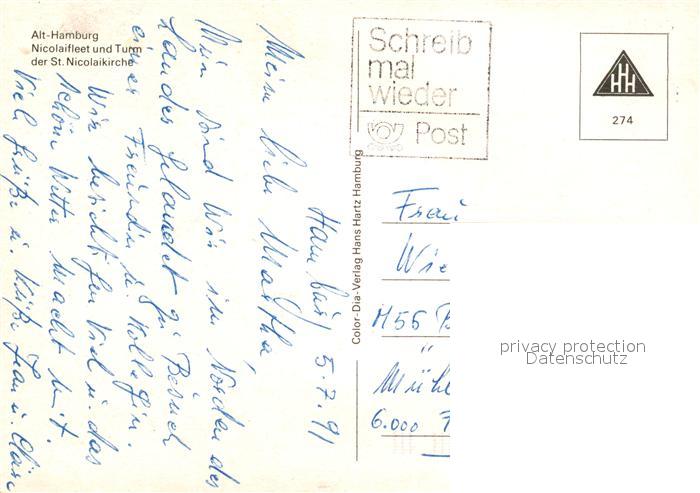 Alt-Hamburg
Nicolaifleet und Turm
der St. Nicolaikirche
Schreib
mal
wieder
Post
HHH
274
Color-Dia-Verlag Hans Hartz Hamburg
Hamburg 5.7.91
Meine liebe Martha,
Nun sind Wir im Norden des
Landes gelandet zu Besuch
einer Freundin u. Kollegin.
Wir besichtigen Viel u. das
schöne Wetter macht mit.
Viel Grüße u. Küße
Frau
Wie
M55
"
6.000
privacy protection
Datenschutz